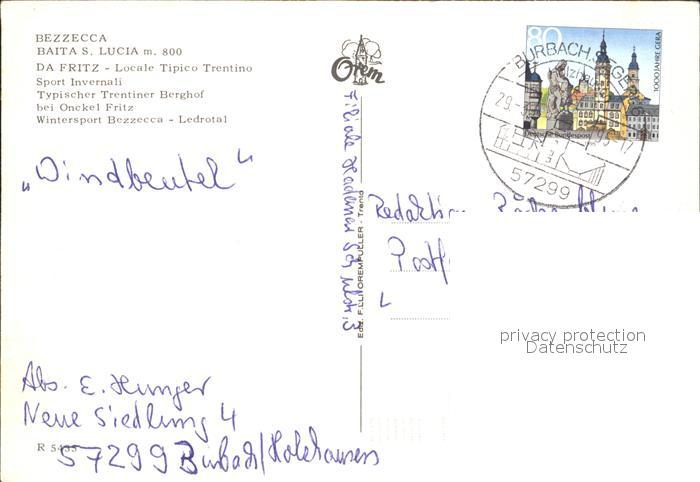 BEZZECCA
BAITA S. LUCIA m. 800
DA FRITZ - Locale Tipico Trentino
Sport Invernali
Typischer Trentiner Berghof
bei Onckel Fritz
Wintersport Bezzecca - Ledrotal
Orem
80
1000 JAHRE GERA
Deutsche Bundespost
BURBACH, SIEGERL
29.
57299
„Windbeutel"
Filiale
Edit. F.LLI OREMPULLER - Trento
Redaktion
Postf
privacy protection
Datenschutz
Abs. E. Hunger
Neue Siedlung 4
57299 Burbach/Holzhausen
R 5435